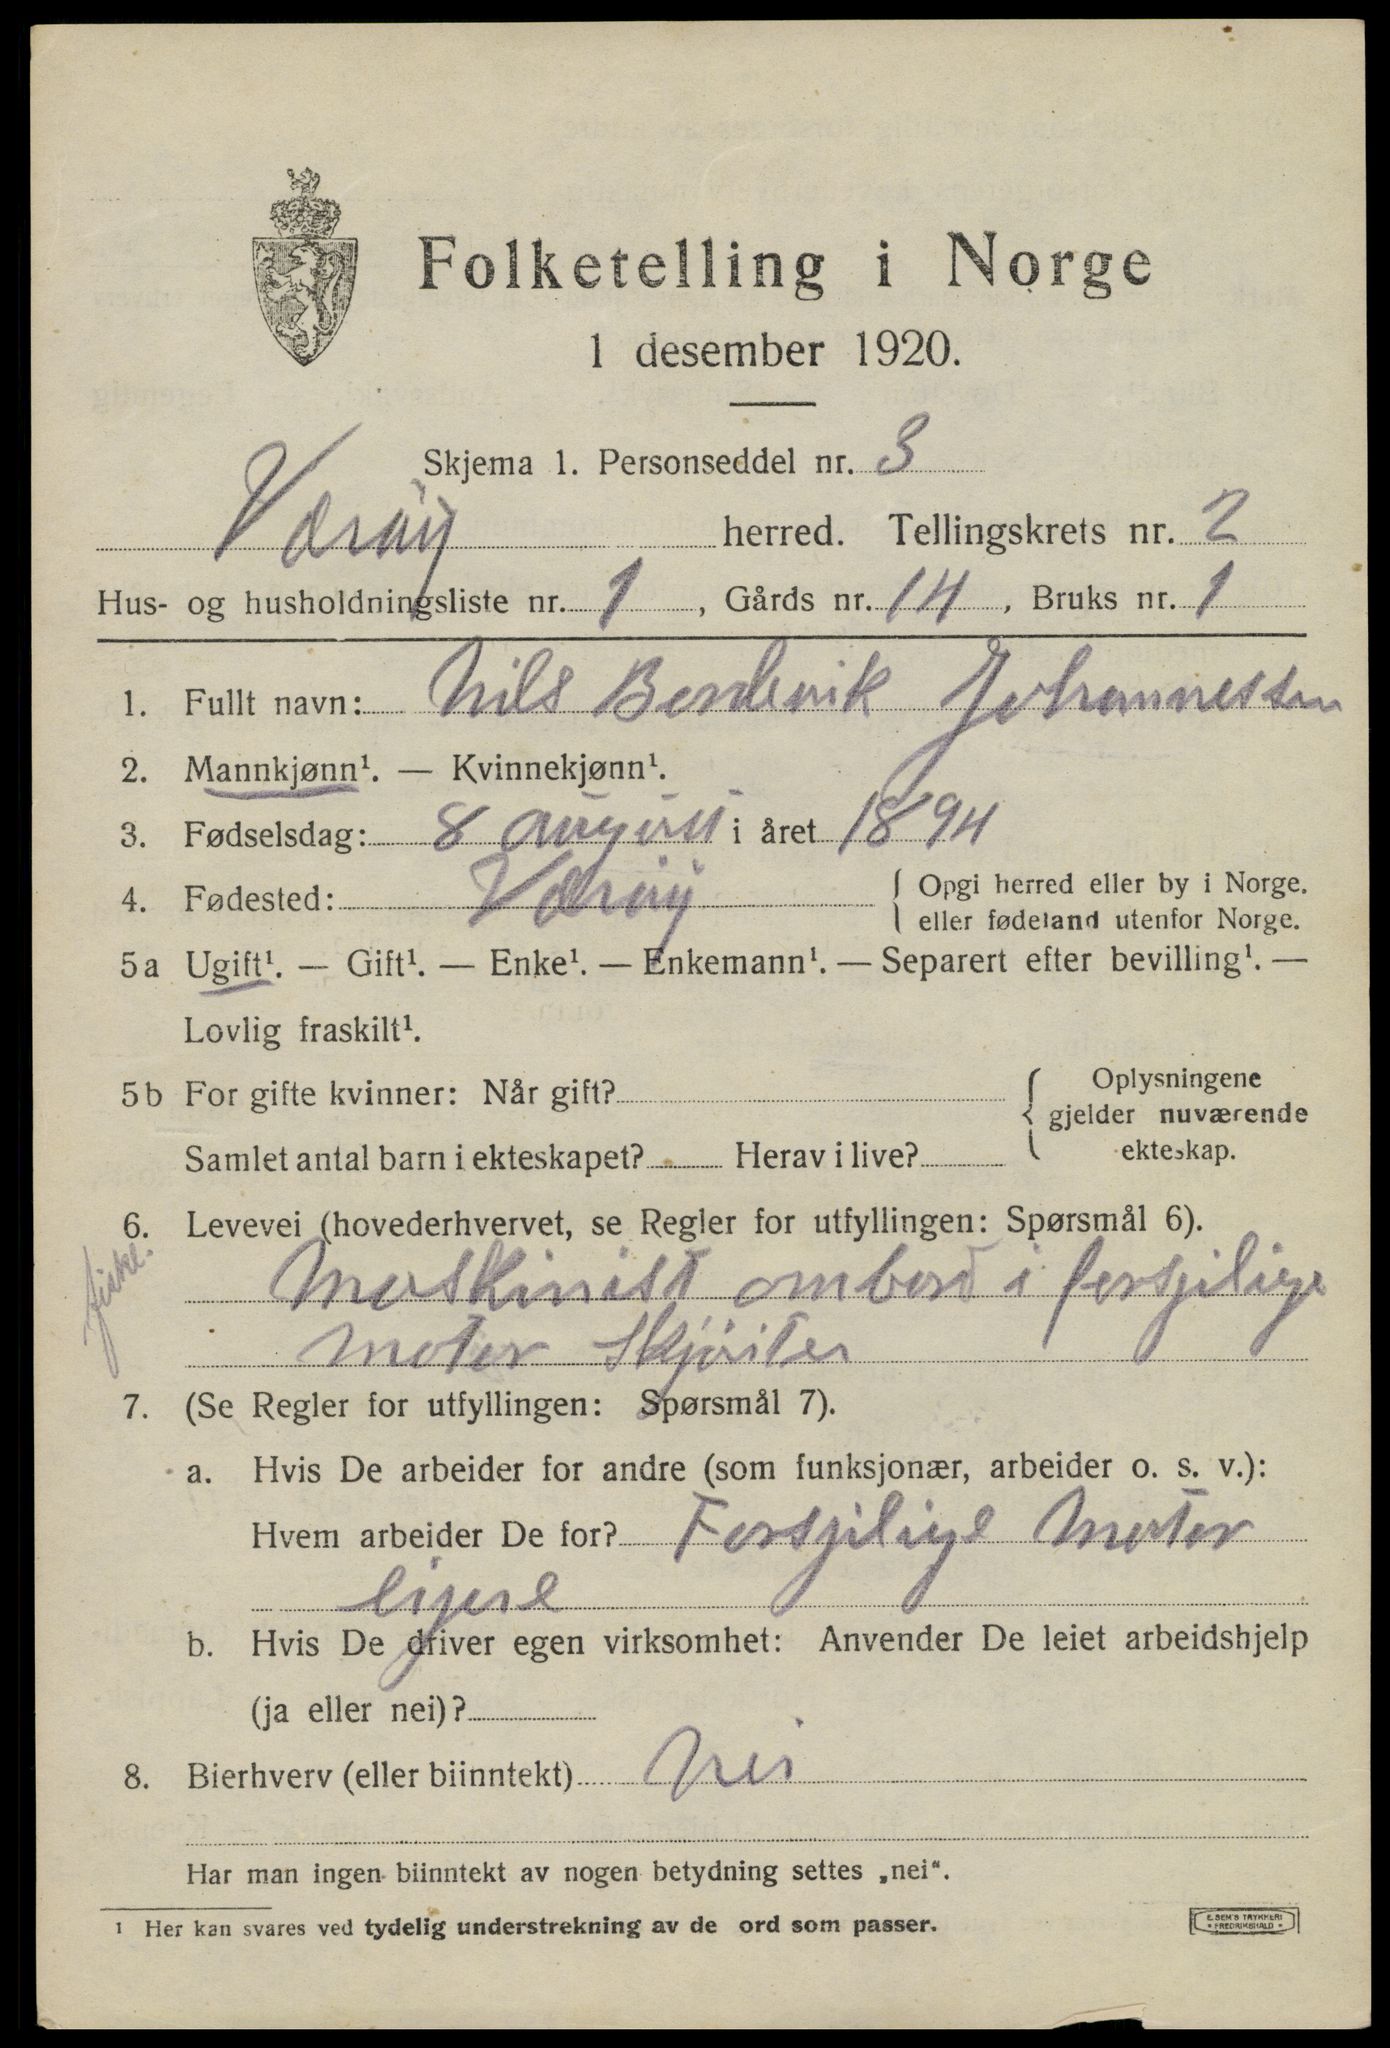 Folketelling i Norge
1 desember 1920.
Skjema 1. Personseddel nr. 3
Værøy herred. Tellingskrets nr. 2
Hus- og husholdningsliste nr. 1, Gårds nr. 14, Bruks nr. 1
1. Fullt navn: Nils Johannessen
2. Mannkjønn¹. — Kvinnekjønn¹.
3. Fødselsdag: 8 august i året 1894
4. Fødested: Værøy { Opgi herred eller by i Norge.
eller fødeland utenfor Norge.
5a Ugift¹. — Gift¹. — Enke¹. — Enkemann¹. — Separert efter bevilling¹. —
Lovlig fraskilt¹.
5b For gifte kvinner: Når gift? { Oplysningene
gjelder nuværende
Samlet antal barn i ekteskapet? Herav i live? ekteskap.
6. Levevei (hovederhvervet, se Regler for utfyllingen: Spørsmål 6).
fiske.
Maskinist ombord i forsjilige
motor Skjøiter
7. (Se Regler for utfyllingen: Spørsmål 7).
a. Hvis De arbeider for andre (som funksjonær, arbeider o. s. v.):
Hvem arbeider De for? Forsjilige Motor
eijere
b. Hvis De driver egen virksomhet: Anvender De leiet arbeidshjelp
(ja eller nei)?
8. Bierhverv (eller biinntekt) Nei
Har man ingen biinntekt av nogen betydning settes „nei“.
¹ Her kan svares ved tydelig understrekning av de ord som passer.
E. SEM'S TRYKKERI
* FREDRIKSHALD *